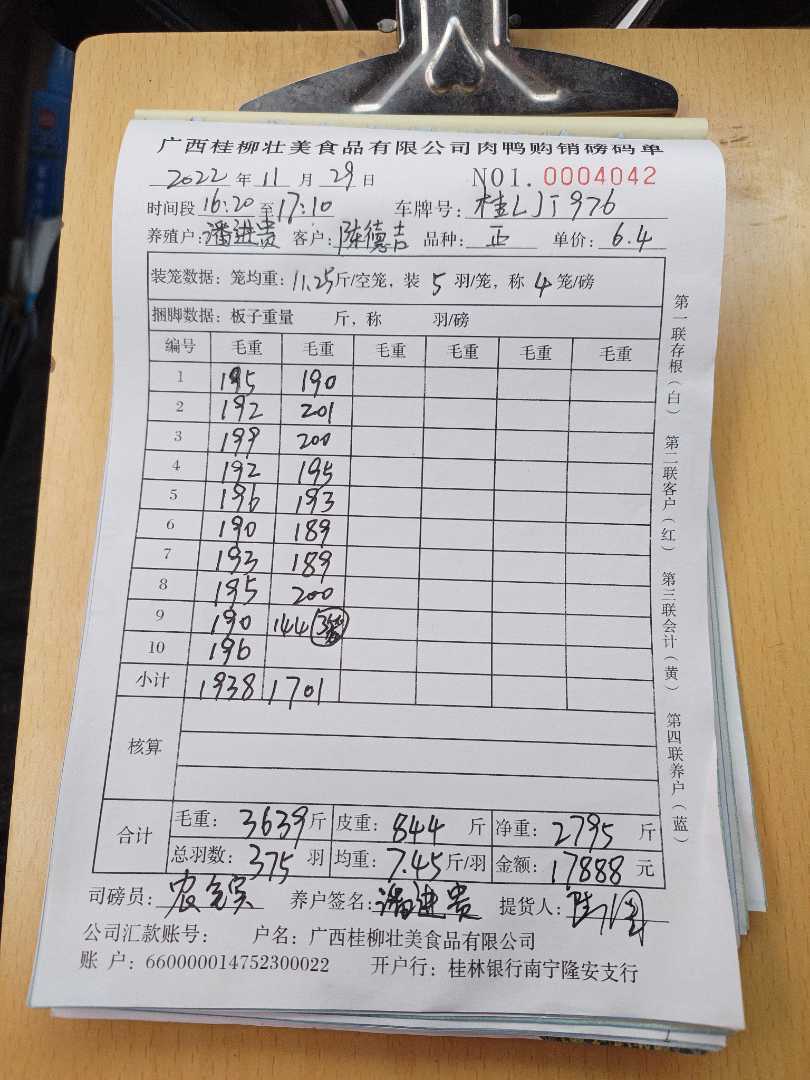 广西桂柳壮美食品有限公司肉鸭购销磅码单
2022 年 11 月 29 日 NO1. 0004042
时间段 16:20 至 17:10 车牌号: 桂LJT976
养殖户: 潘进贵 客户: 陈德吉 品种: 正 单价: 6.4
装笼数据: 笼均重: 11.25 斤/空笼, 装 5 羽/笼, 称 4 笼/磅
捆脚数据: 板子重量 斤, 称 羽/磅
编号 毛重 毛重 毛重 毛重 毛重 毛重
1 195 190
2 192 201
3 199 200
4 192 195
5 196 193
6 190 189
7 193 189
8 195 200
9 190 144
10 196
小计 1938 1701
核算
合计
毛重: 3639 斤 皮重: 844 斤 净重: 2795 斤
总羽数: 375 羽 均重: 7.45 斤/羽 金额: 17888 元
司磅员: 养户签名: 潘进贵 提货人:
公司汇款账号: 户名: 广西桂柳壮美食品有限公司
账 户: 660000014752300022 开户行: 桂林银行南宁隆安支行
第一联存根(白) 第二联客户(红) 第三联会计(黄) 第四联养户(蓝)